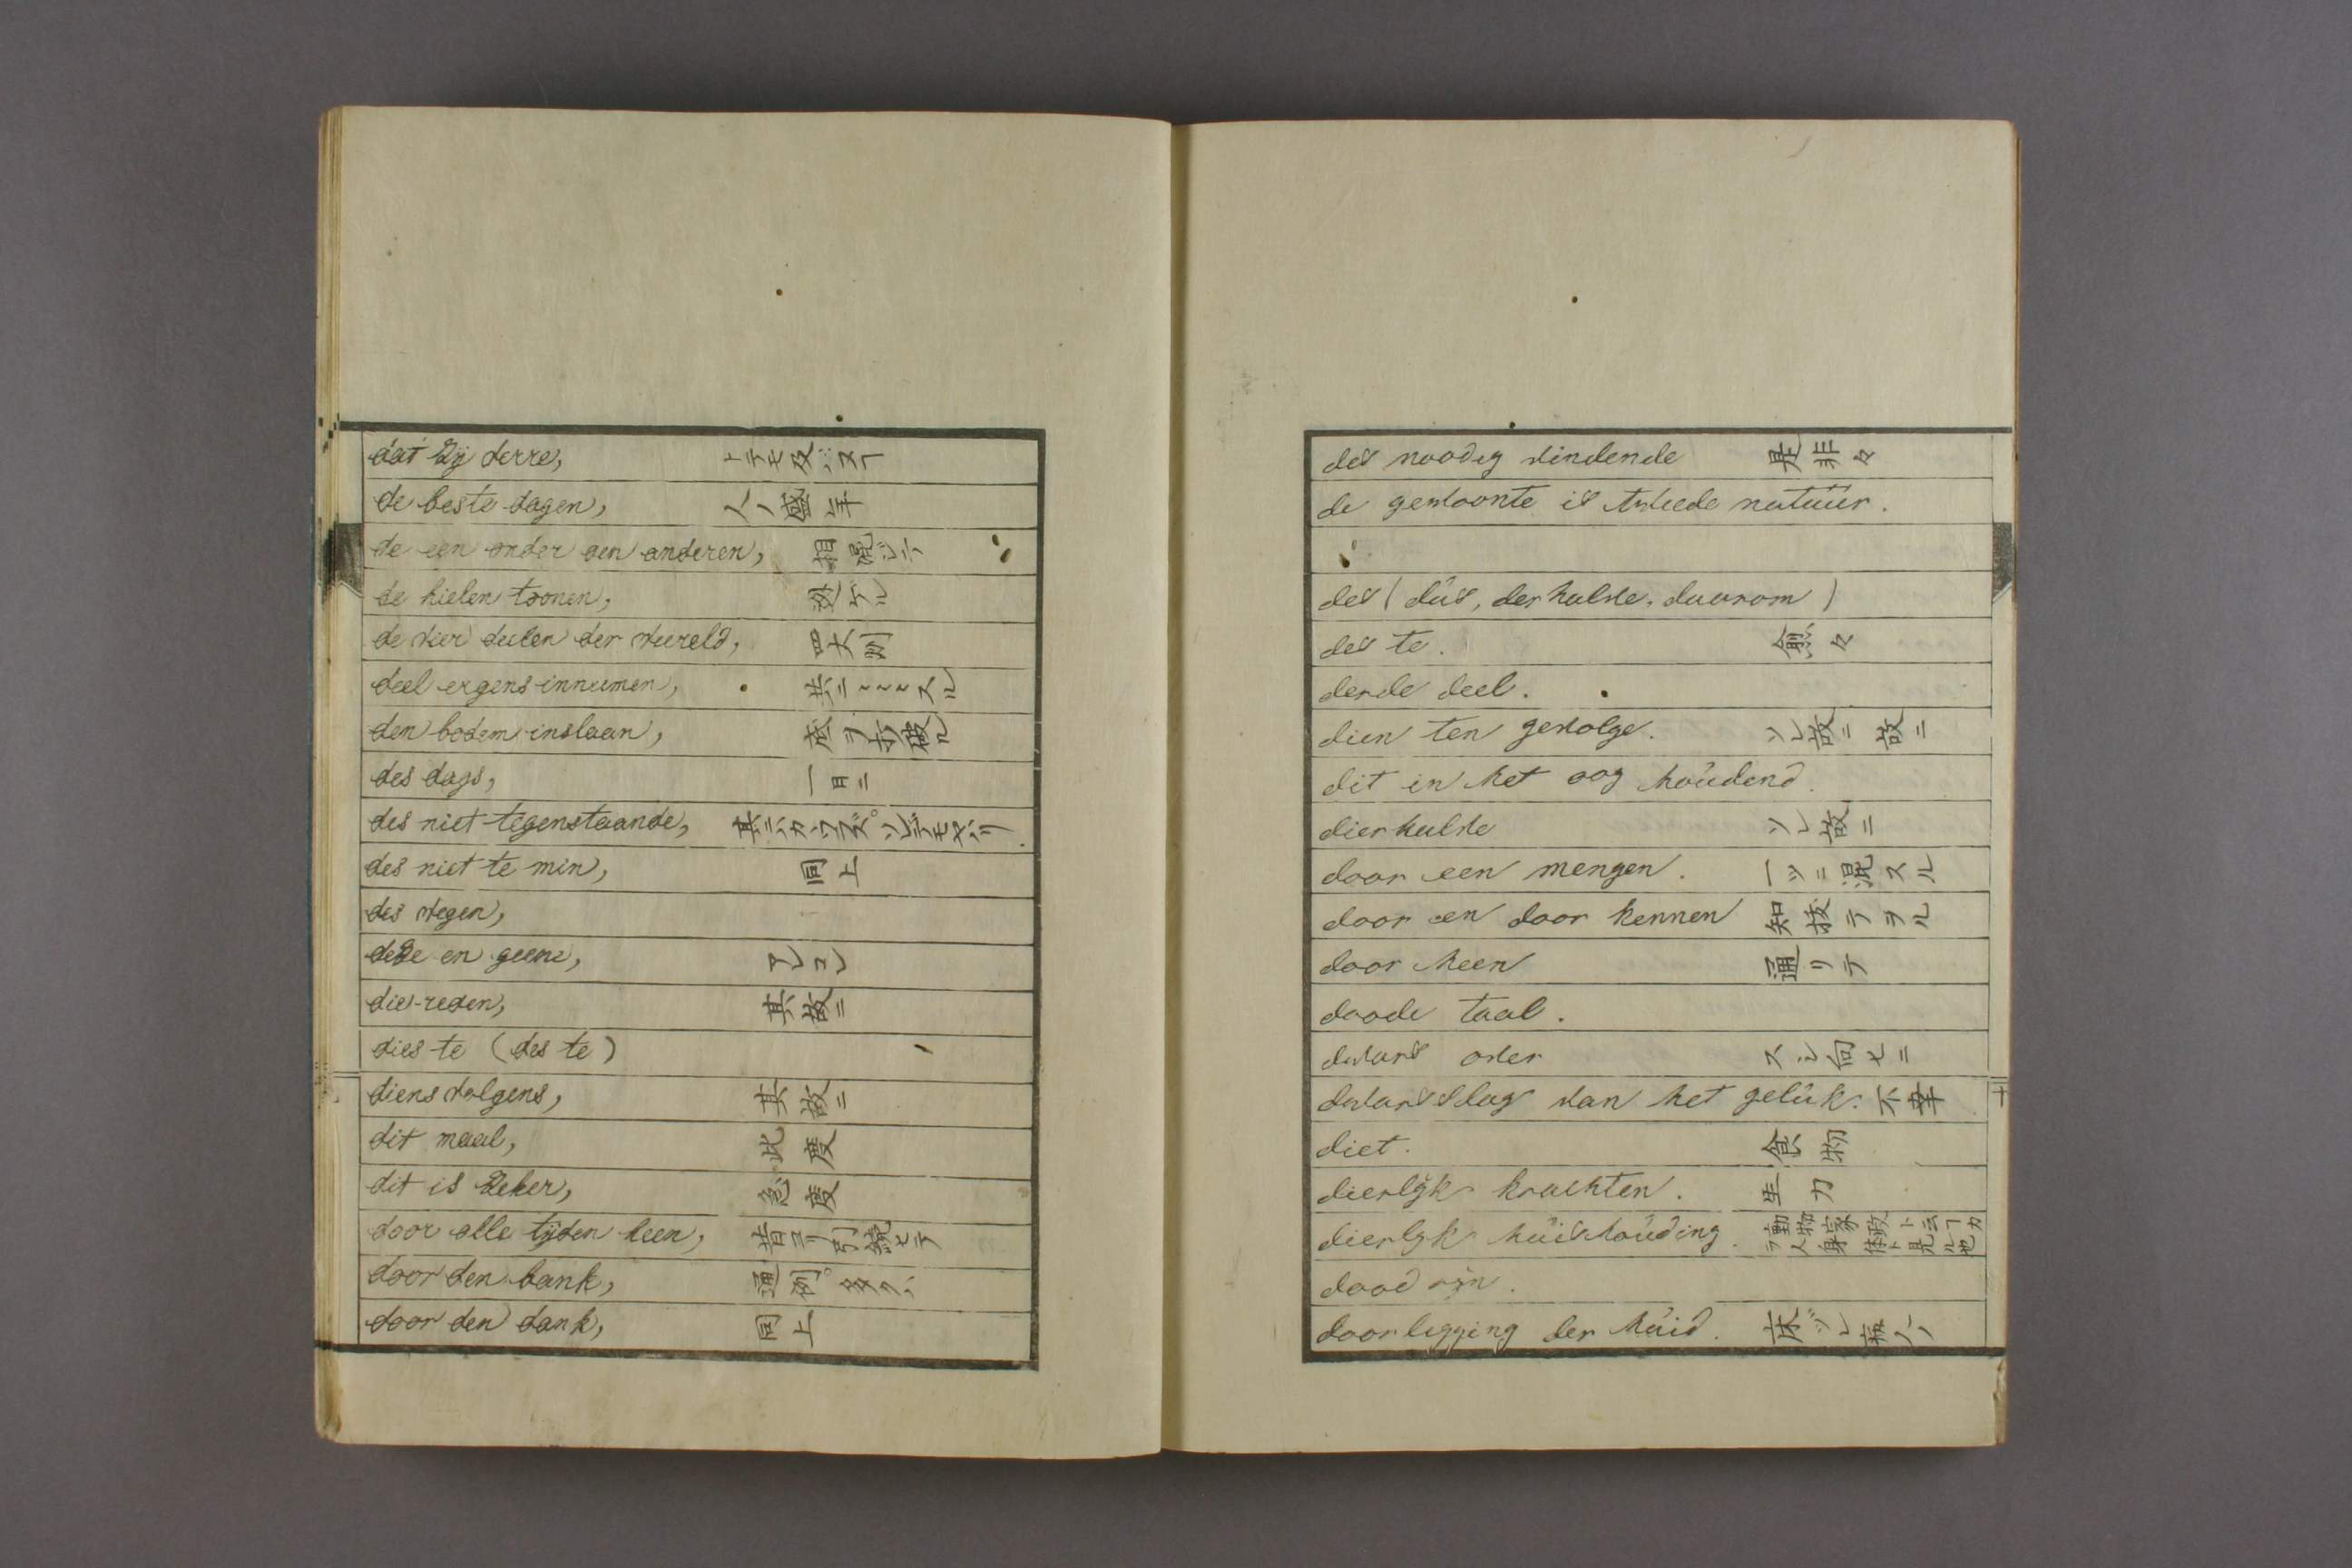 dat Zij verre, トテモ及バヌ丁
de beste dagen, 人ノ盛年
de een onder den anderen, 相混ジテ
de hielen toonen, 迯ゲル
de vier deelen der wereld, 四大洲
deel ergens inneemen, 共ニ〻〻〻スル
den bodem inslaan, 底ヲ打破ル
des dags, 一日ニ
des niet tegenstaande, 其ニカヽワラズ。ソレデモヤハリ
des niet te min, 同上
des wegen,
deZe en geene, アレコレ
die reden, 其故ニ
dies te (des te)
diens volgens, 其故ニ
dit maal, 此度
dit is Zeker, 急度
door alle tijden heen, 昔ヨリ引続ヒテ
door den bank, 通例。多クハ
door den dank, 同上
des noodig vindende 是非々
de gewoonte is tweede natuur.
des (dus, derhalve, daarom)
des te. 愈々
derde deel.
dien ten gevolge. ソレ故ニ 故ニ
dit in het oog houdend.
dierhalve ソレ故ニ
door een mengen. 一ツニ混スル
door en door kennen 知抜テヲル
door heen 通リテ
doode taal.
dwars over スシ向ヒニ
dwarsslag van het geluk. 不幸
十一
diet. 食物
dierlijk krachten. 生力
dierlijk huishouding. 動物家政ト云フカ
人身体ト見ル也
dood zijn.
doorligging der huid. 床ヅレ 病人ノ